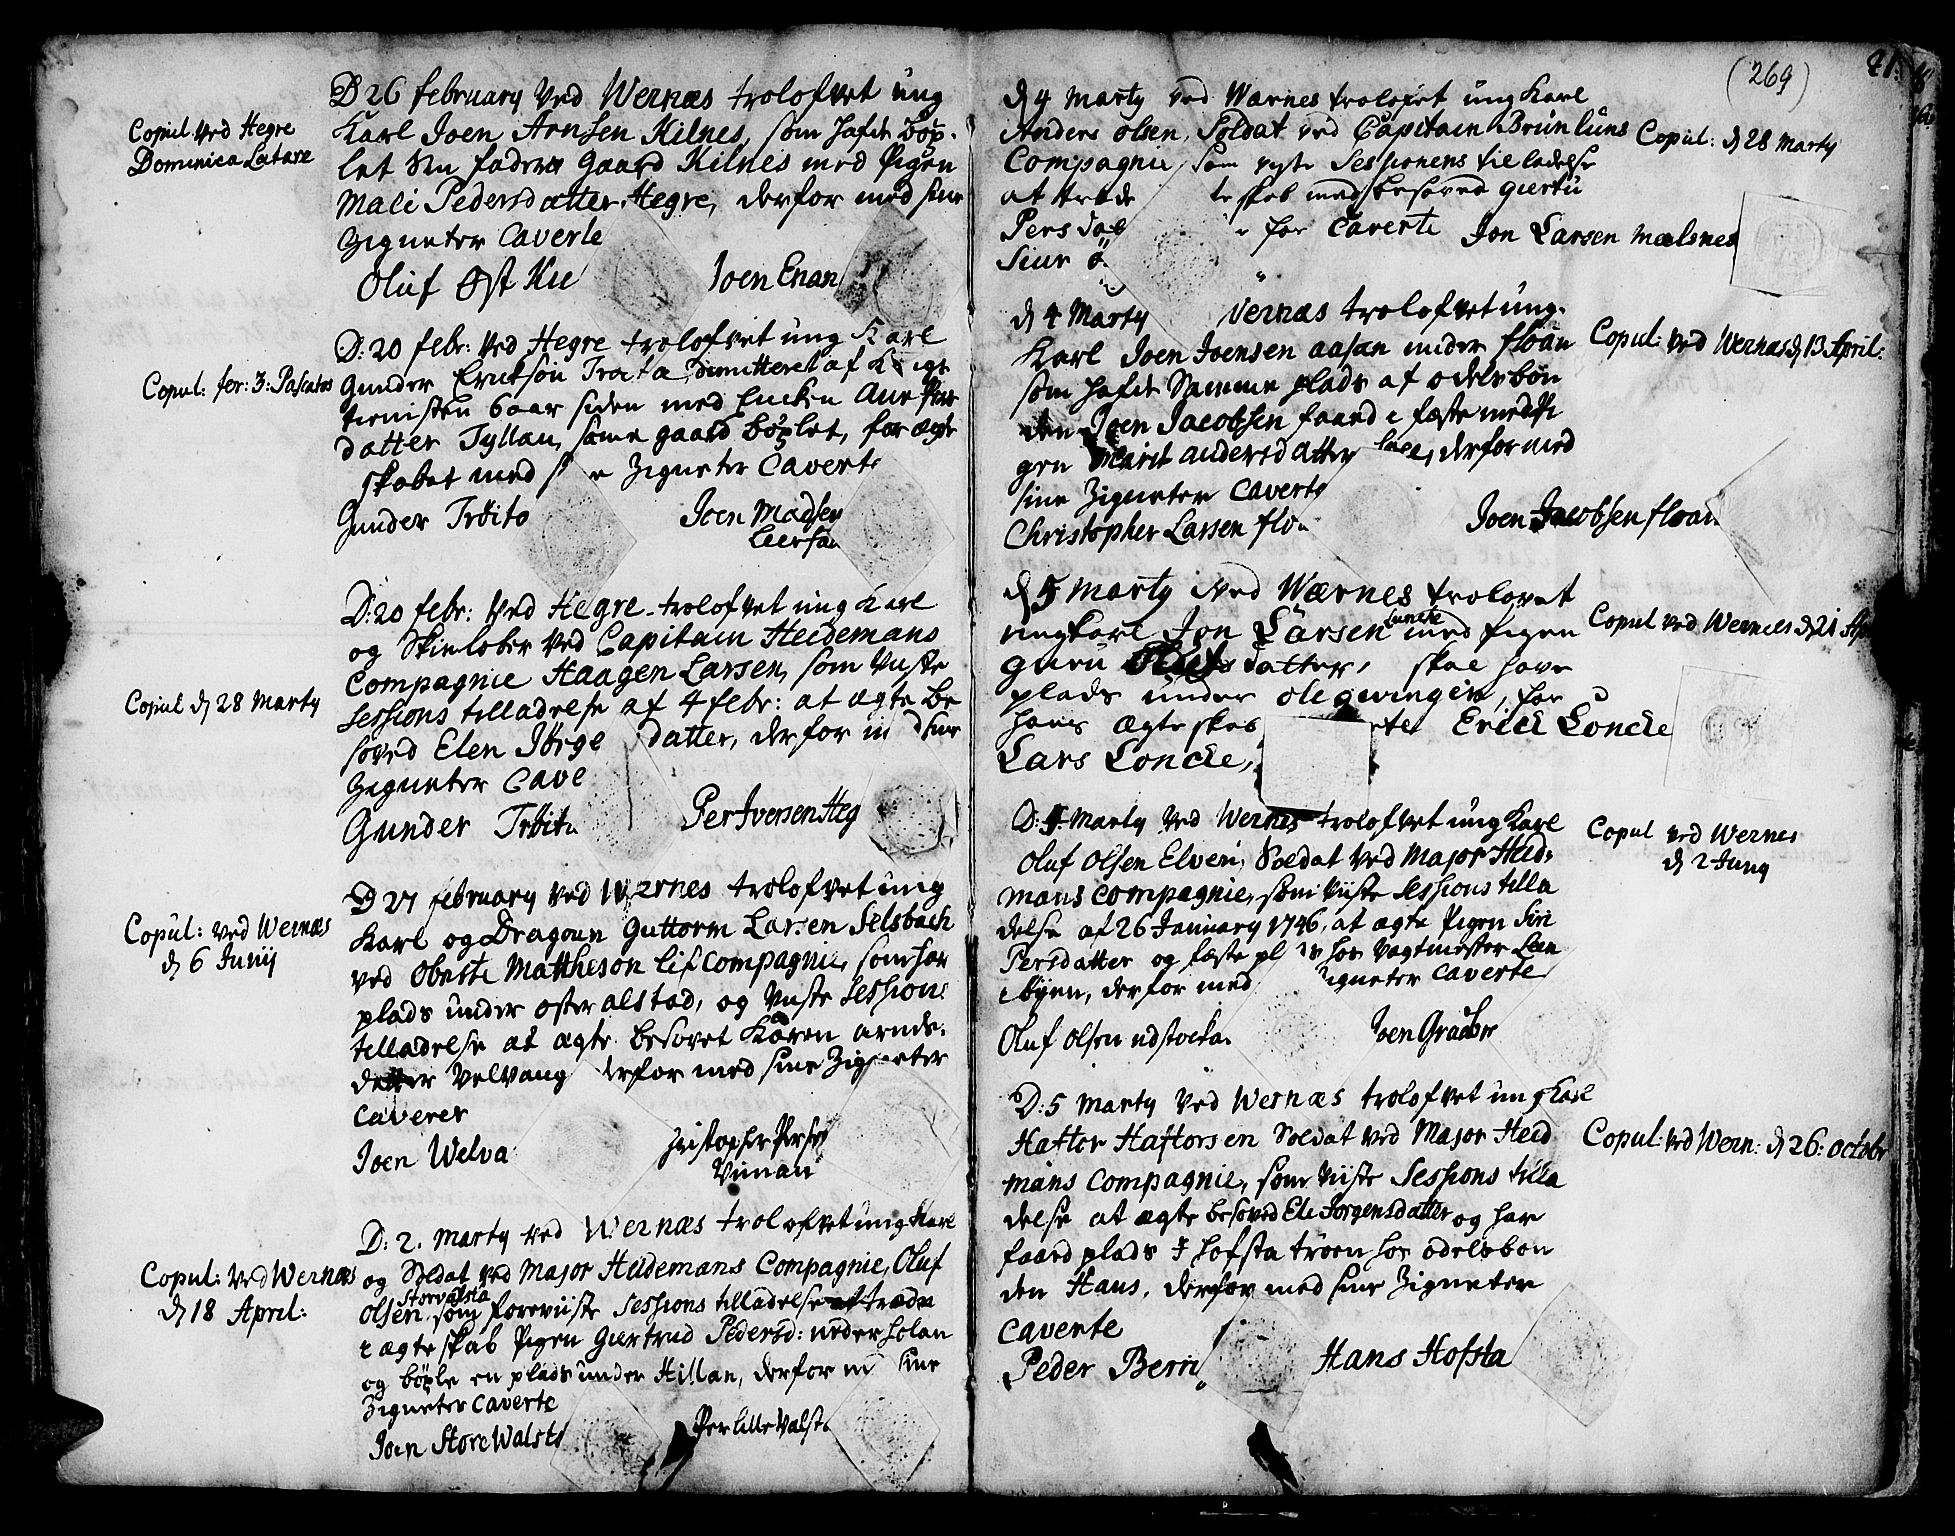 Copul. ved Hegre
Dominica Lætare
D 26 february ved Wernæs trolofvet ung
Karl Joen Arnsen Kilnes, som hafde bøx-
let sin faders gaard Kilnes med Pigen
Mali Pedersdatter Hegre, derfor med sine
Zigneter Caverte
Oluf Øst Ku
Joen Enan
Copul: fer: 3: Pascatos
D: 20 febr: ved Hegre trolofvet ung Karl
Gunder Erickson Tröita, dimitteret af K igs
tienisten 6 aar siden med Encken Ane Pers
datter Fyllan, same gaard bøxlet, for ægte
skabet med si e Zigneter Caverte
Gunder Tröito
Joen Madsen
Leersan
Copul d 28 Marty
D: 20 febr: ved Hegre trolofvet ung Karl
og Skieløber ved Capitain Heidemans
Compagnie Haagen Larsen, som viiste
Sessions tilladelse af 4 febr: at ægte be
soved Elen Jörge datter, derfor m d sine
Zigneter Cave
Gunder Tröit
Per Iversen Heg
Copul: ved Wernæs
d 6 Junij
D 27 february ved Wernes trolofvet ung
Karl og Dragoun Guttorm Larsen Selsbach
ved Obriste Mattheson lif Compagnie, som har
plads under øster alstad, og viiste Sessions
tilladelse at ægte besovet Karen arnds-
datter Velvang derfor med sine Zigneter
caverer
Joen Welva
Christopher Persen
Viinan
Copul: ved Wernæs
d 18 April:
D: 2. Marty ved Wernæs trolofvet ung Karl
og Soldat ved Major Heidemans Compagnie, Oluf
Storvalsta
Olsen, som foreviiste Sessions tilladelse at træde
i ægteskab Pigen Giertrud Pedersd: neder holan
og bøxle en plads under Hillan, derfor m sine
Zigneter Caverte
Joen Store Walsto
Per lille Valst
(269)
41.
d 4 Marty ved Wærnes trolovet ung Karl
Anders Olsen, Soldat ved Capitain Brunluns
Compagnie som viste Sessionens tilladelse
at træde te skab med besoved Giertru
Pers da for Caverte Jon Larsen Mælsnes
Siur ö
Copul: d 28 Marty
d 4 Marty vernæs trolofvet ung-
Karl Joen Joensen aasan under floan
som hafde Samme plads af odelsbøn
den Joen Jacobsen faard i fæste med Pi
gen Marit andersdatter, derfor med
sine Zigneter Caverte
Christopher Larsen flo
Joen Jacobsen floan
Copul: ved Wernæs d 13 April:
d 5 Marty ved Wærnes trolovet
Luncke
ungkarl Jon Larsen med Pigen
Guru Olufsdatter, skal have
plads under ole gwingen, for
hans ægteskab rte Erick Loncke
Lars Loncke,
Copul ved Wernæs d 21 Ap
D: 5. Marty ved Wernes trolofvet ung Karl
Oluf Olsen Elven, Soldat ved Major Heid-
mans Compagnie, som viiste Sessions tilla
delse af 26 January 1746, at ægte Pigen Siri
Persdatter og fæste pl hos Vagtmester Lan
i byen, derfor med igneter Caverte
Oluf Olsen udstocka
Joen Gracker
Copul ved Wernes
d 2 Juny
D: 5 Marty ved Wernæs trolofvet ung Karl
Haftor Haftorsen Soldat ved Major Heid
mans Compagnie, som viiste Sessions tilla
delse at ægte besoved Eli Jorgensdatter og har
faard plads i hofsta trøen hos odelsbon
den Hans, derfor med sine Zigneter
Caverte
Peder Berri
Hans Hofsta
Copul: ved Wern: d 26: octobr